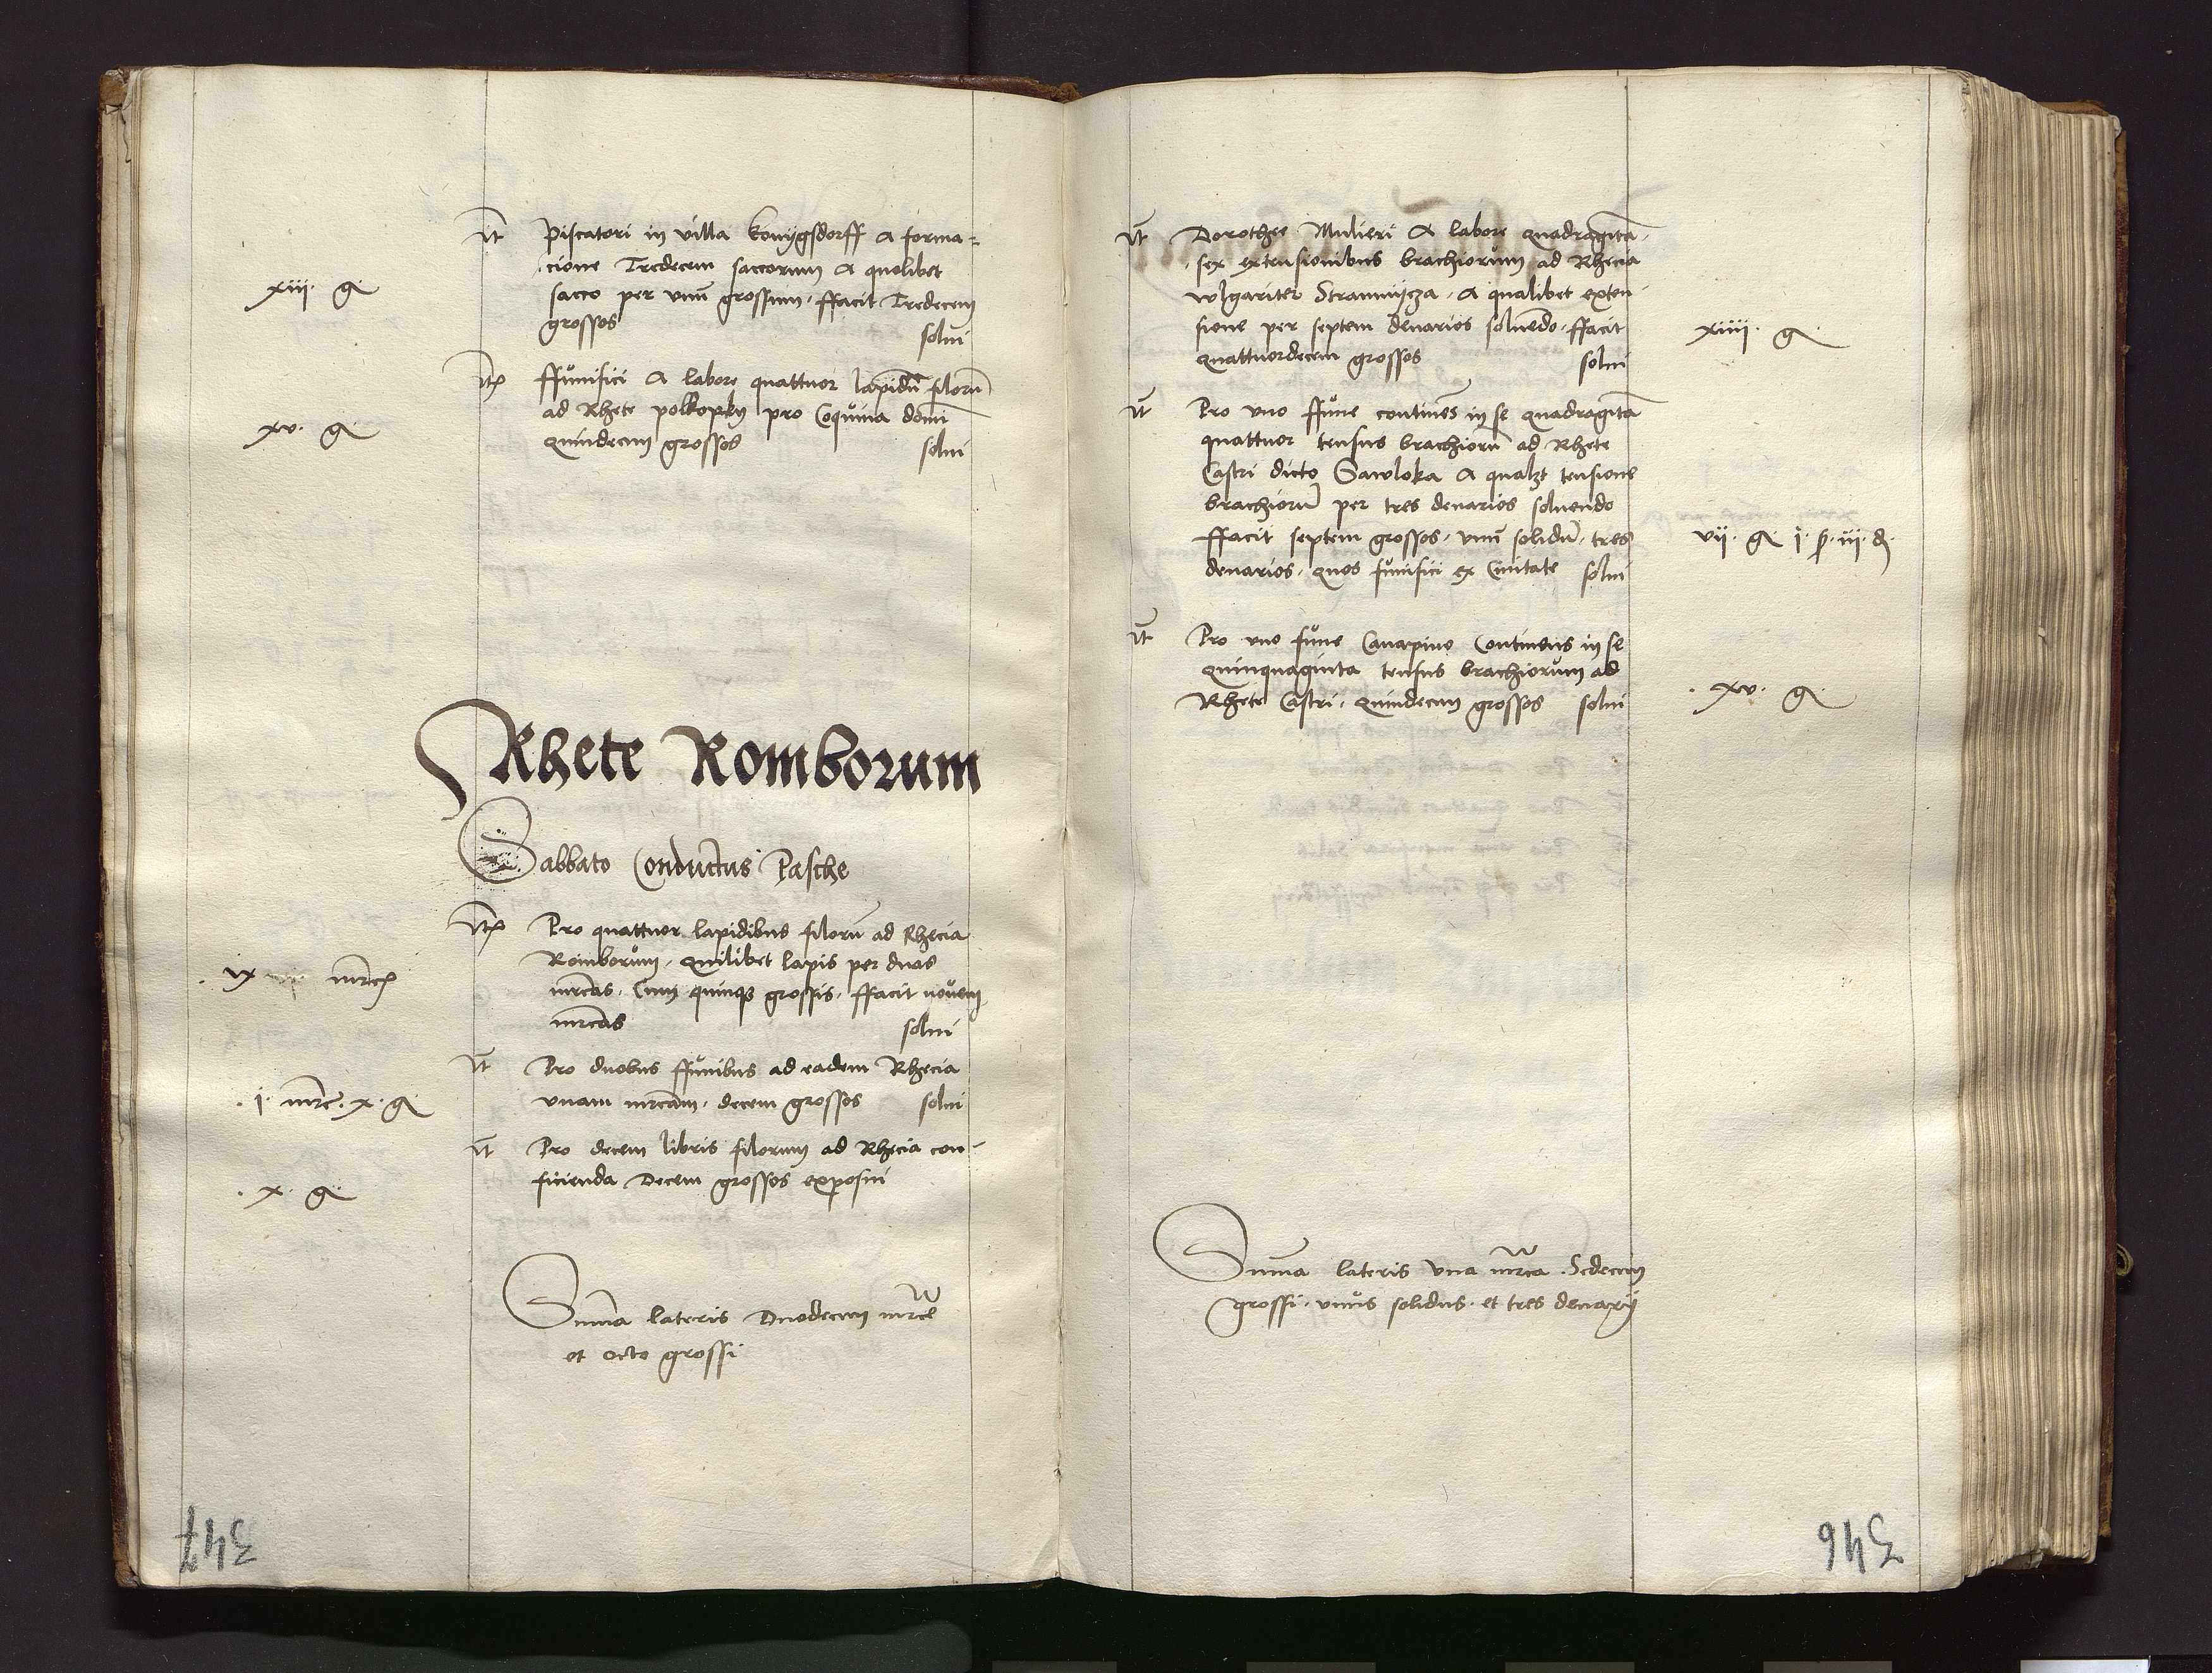 It Piscatori in villa konygsdorff A forma=
cione Tredecem saccorum A quolibet
xiii· g· sacco per vnu grossum· ffacit Tredecem
grossos solui
Ite ffunifici A labore quattuor lapidu filoru
xv· g· ad Rhete polkopky pro Coquina domi
quindecim grossos solui
Rhete Romborum
Sabbato Conductus Pasche
Ite Pro quattuor lapidibus filoru ad Rhecia
Romborum· quilibet lapis per duas
·ix mrce mrcas· Cum quinq3 grossis· ffacit novem
mrcas solui
It Pro duobus ffunibus ad eadem Rhecia
·i· mrc·x·g· vnam mrcam· decem grossos solui
It Pro decem libris filorum ad Rhecia con-
·x· g· ficienda Decem grossos exposui
Suma lateris Duodecim mrce
et octo grossi
347
It Dorothee Mulieri A labore quadragita·
sex extensionibus brachiorum ad Rhecia
wlgariter Strannycza· A qualibet exten-
sione per septem denarios soluedo· ffacit xiiii· g·
quattuordecem grossos solui
It Pro vno ffune contines in se quadragita
quattuor tensus brachioru ad Rhete
Castri dicto Sawloka A qualzt tensione
brachioru per tres denarios soluendo
ffacit septem grossos· vnu solidu· tres vii· g· i· s·iii·d·
denarios· quos funifici ex Ciuitate solui
It Pro vno fune Canapino Continens in se
quinquaginta tensus brachiorum ad
Rhete Castri· quindecim grossos solui ·xv· g·
Suma lateris vna mrca· Sedecim
grossi· vnus solidus· et tres denarij
346